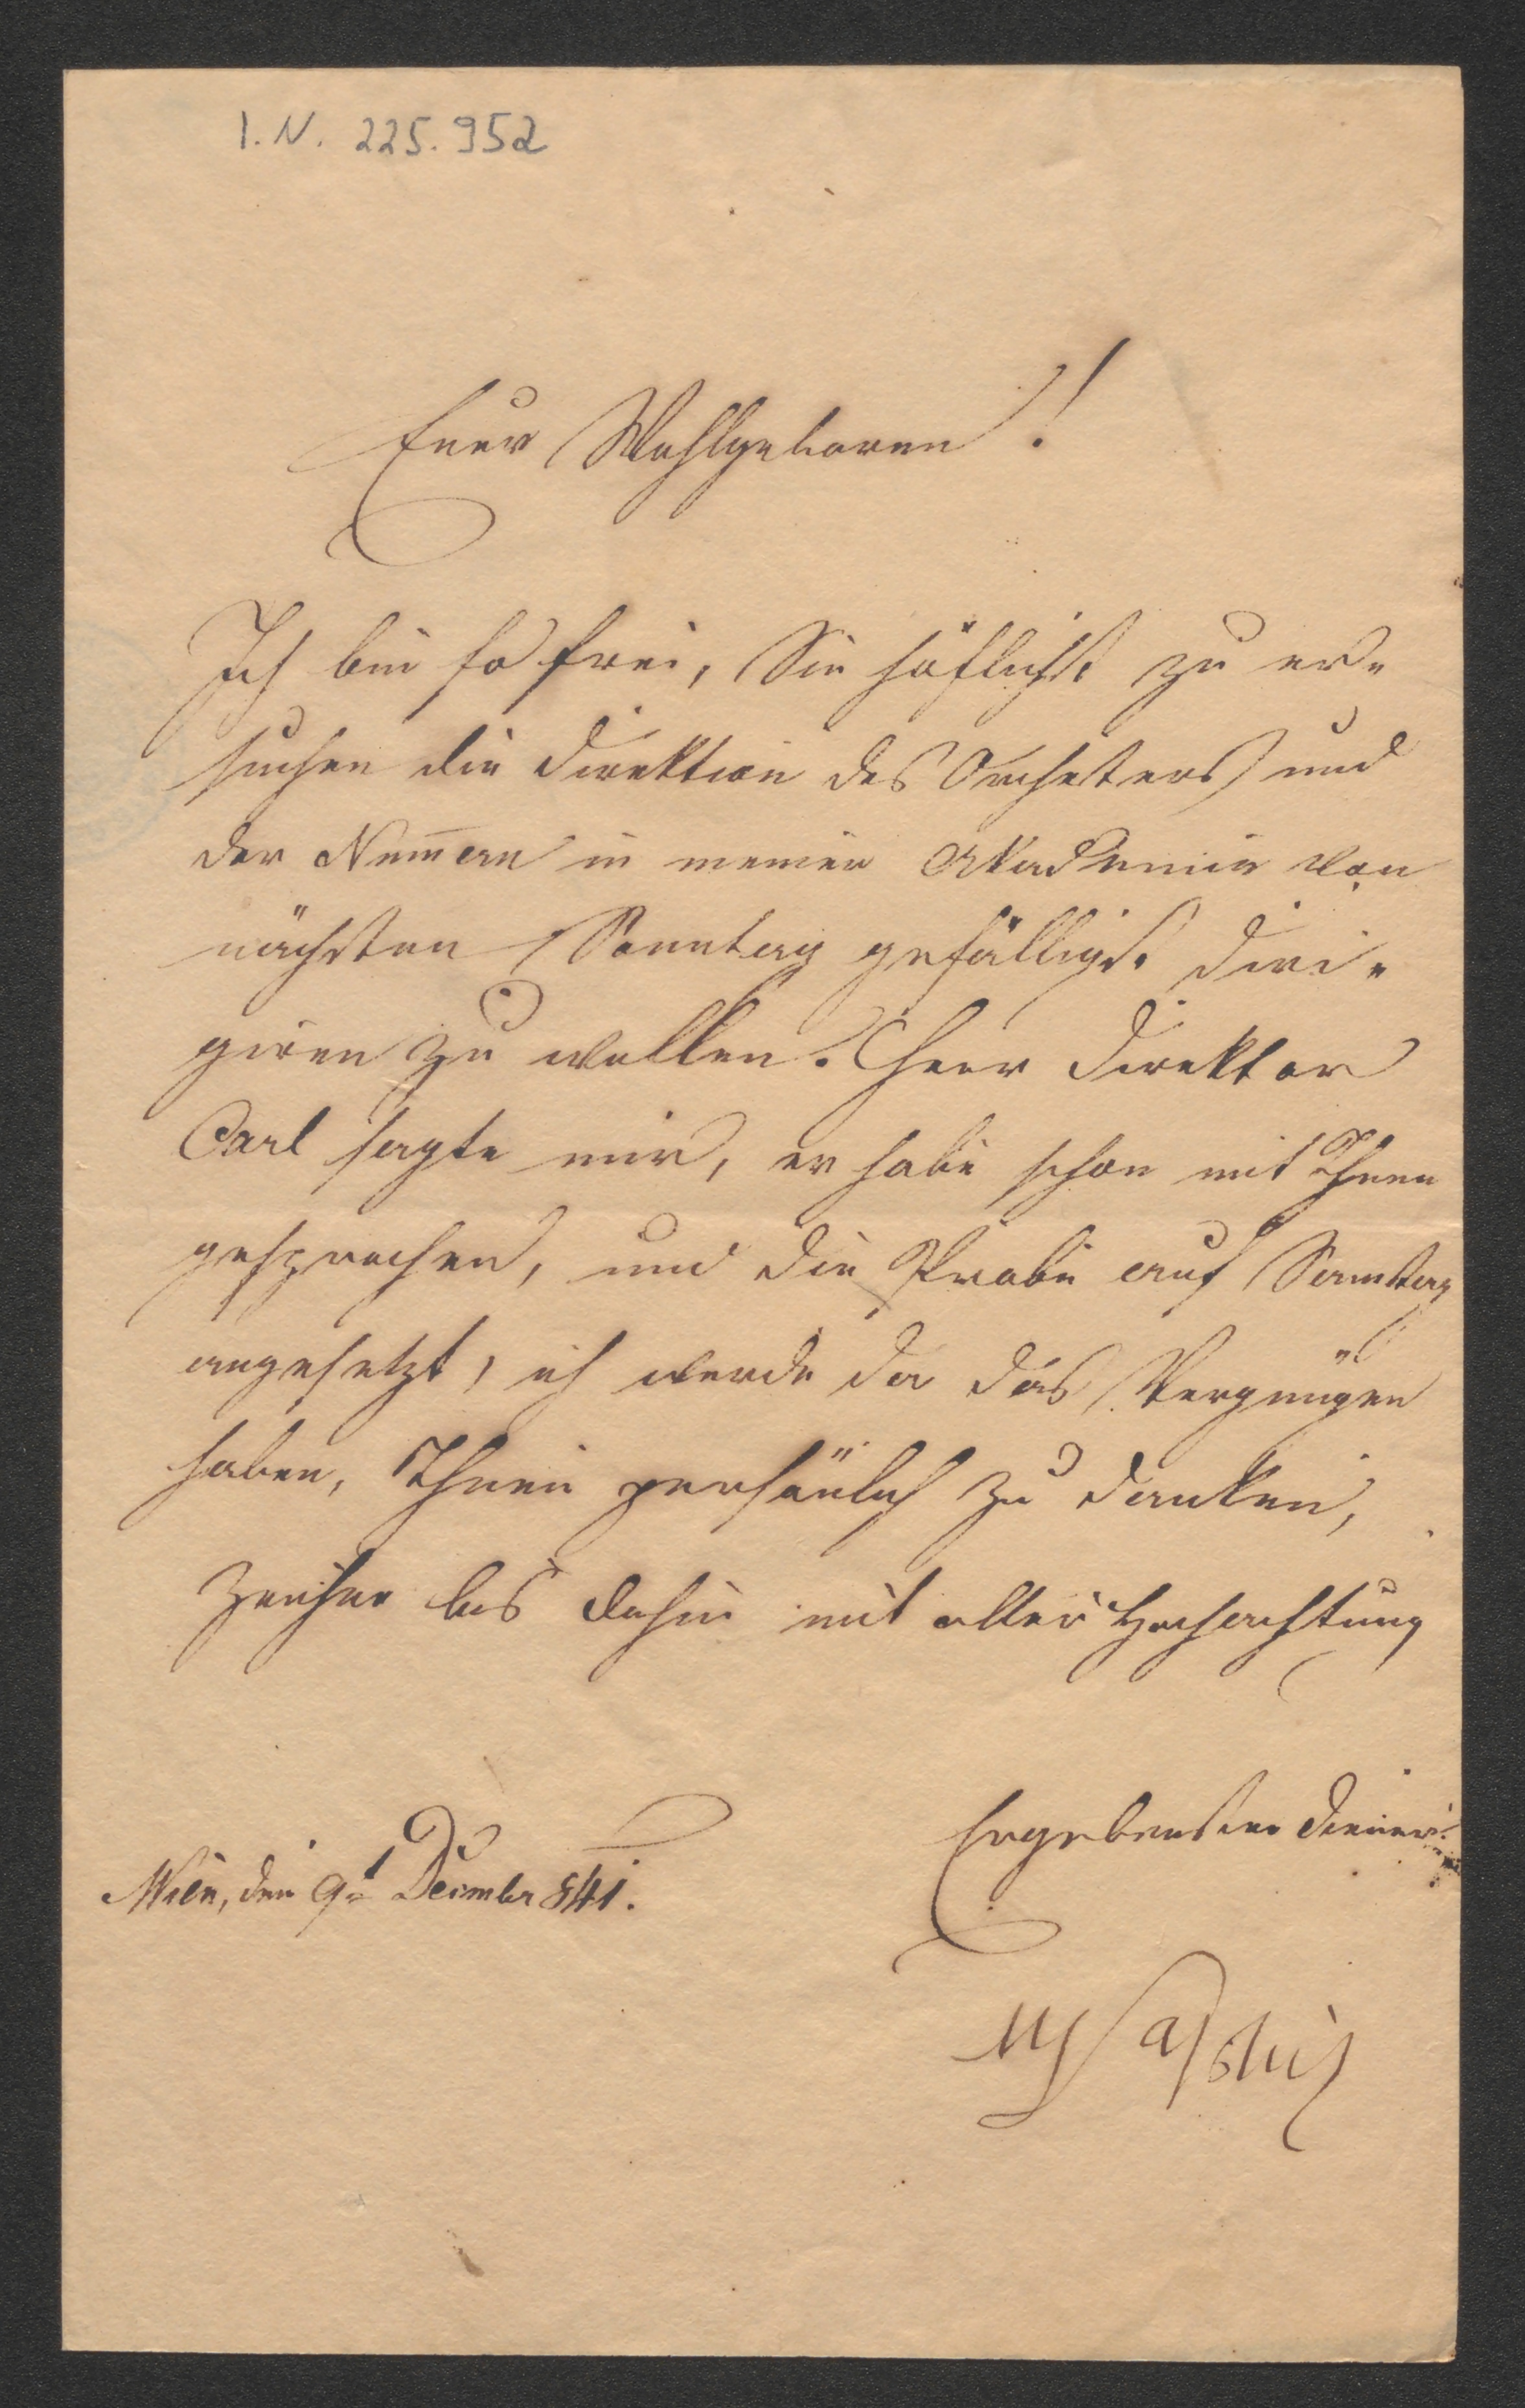 I.N. 225.952
Euer Wohlgeboren!
Ich bin so frei, Sie höflichst zu er-
suchen die Direktion des Orchesters und
der Num̄ern in meiner Akademie von
nächsten Sonntag gefälligst diri-
giren zu wollen. Herr Direktor
Carl sagte mir, er habe schon mit Ihnen
gesprochen, und die Probe auf Samstag
angesetzt, ich werde da das Vergnügen
haben, Ihnen persönlich zu danken,
Zeichne bis dahin mit aller Hochachtung
Ergebenster Diener
Wien, den 9t December 841.
M